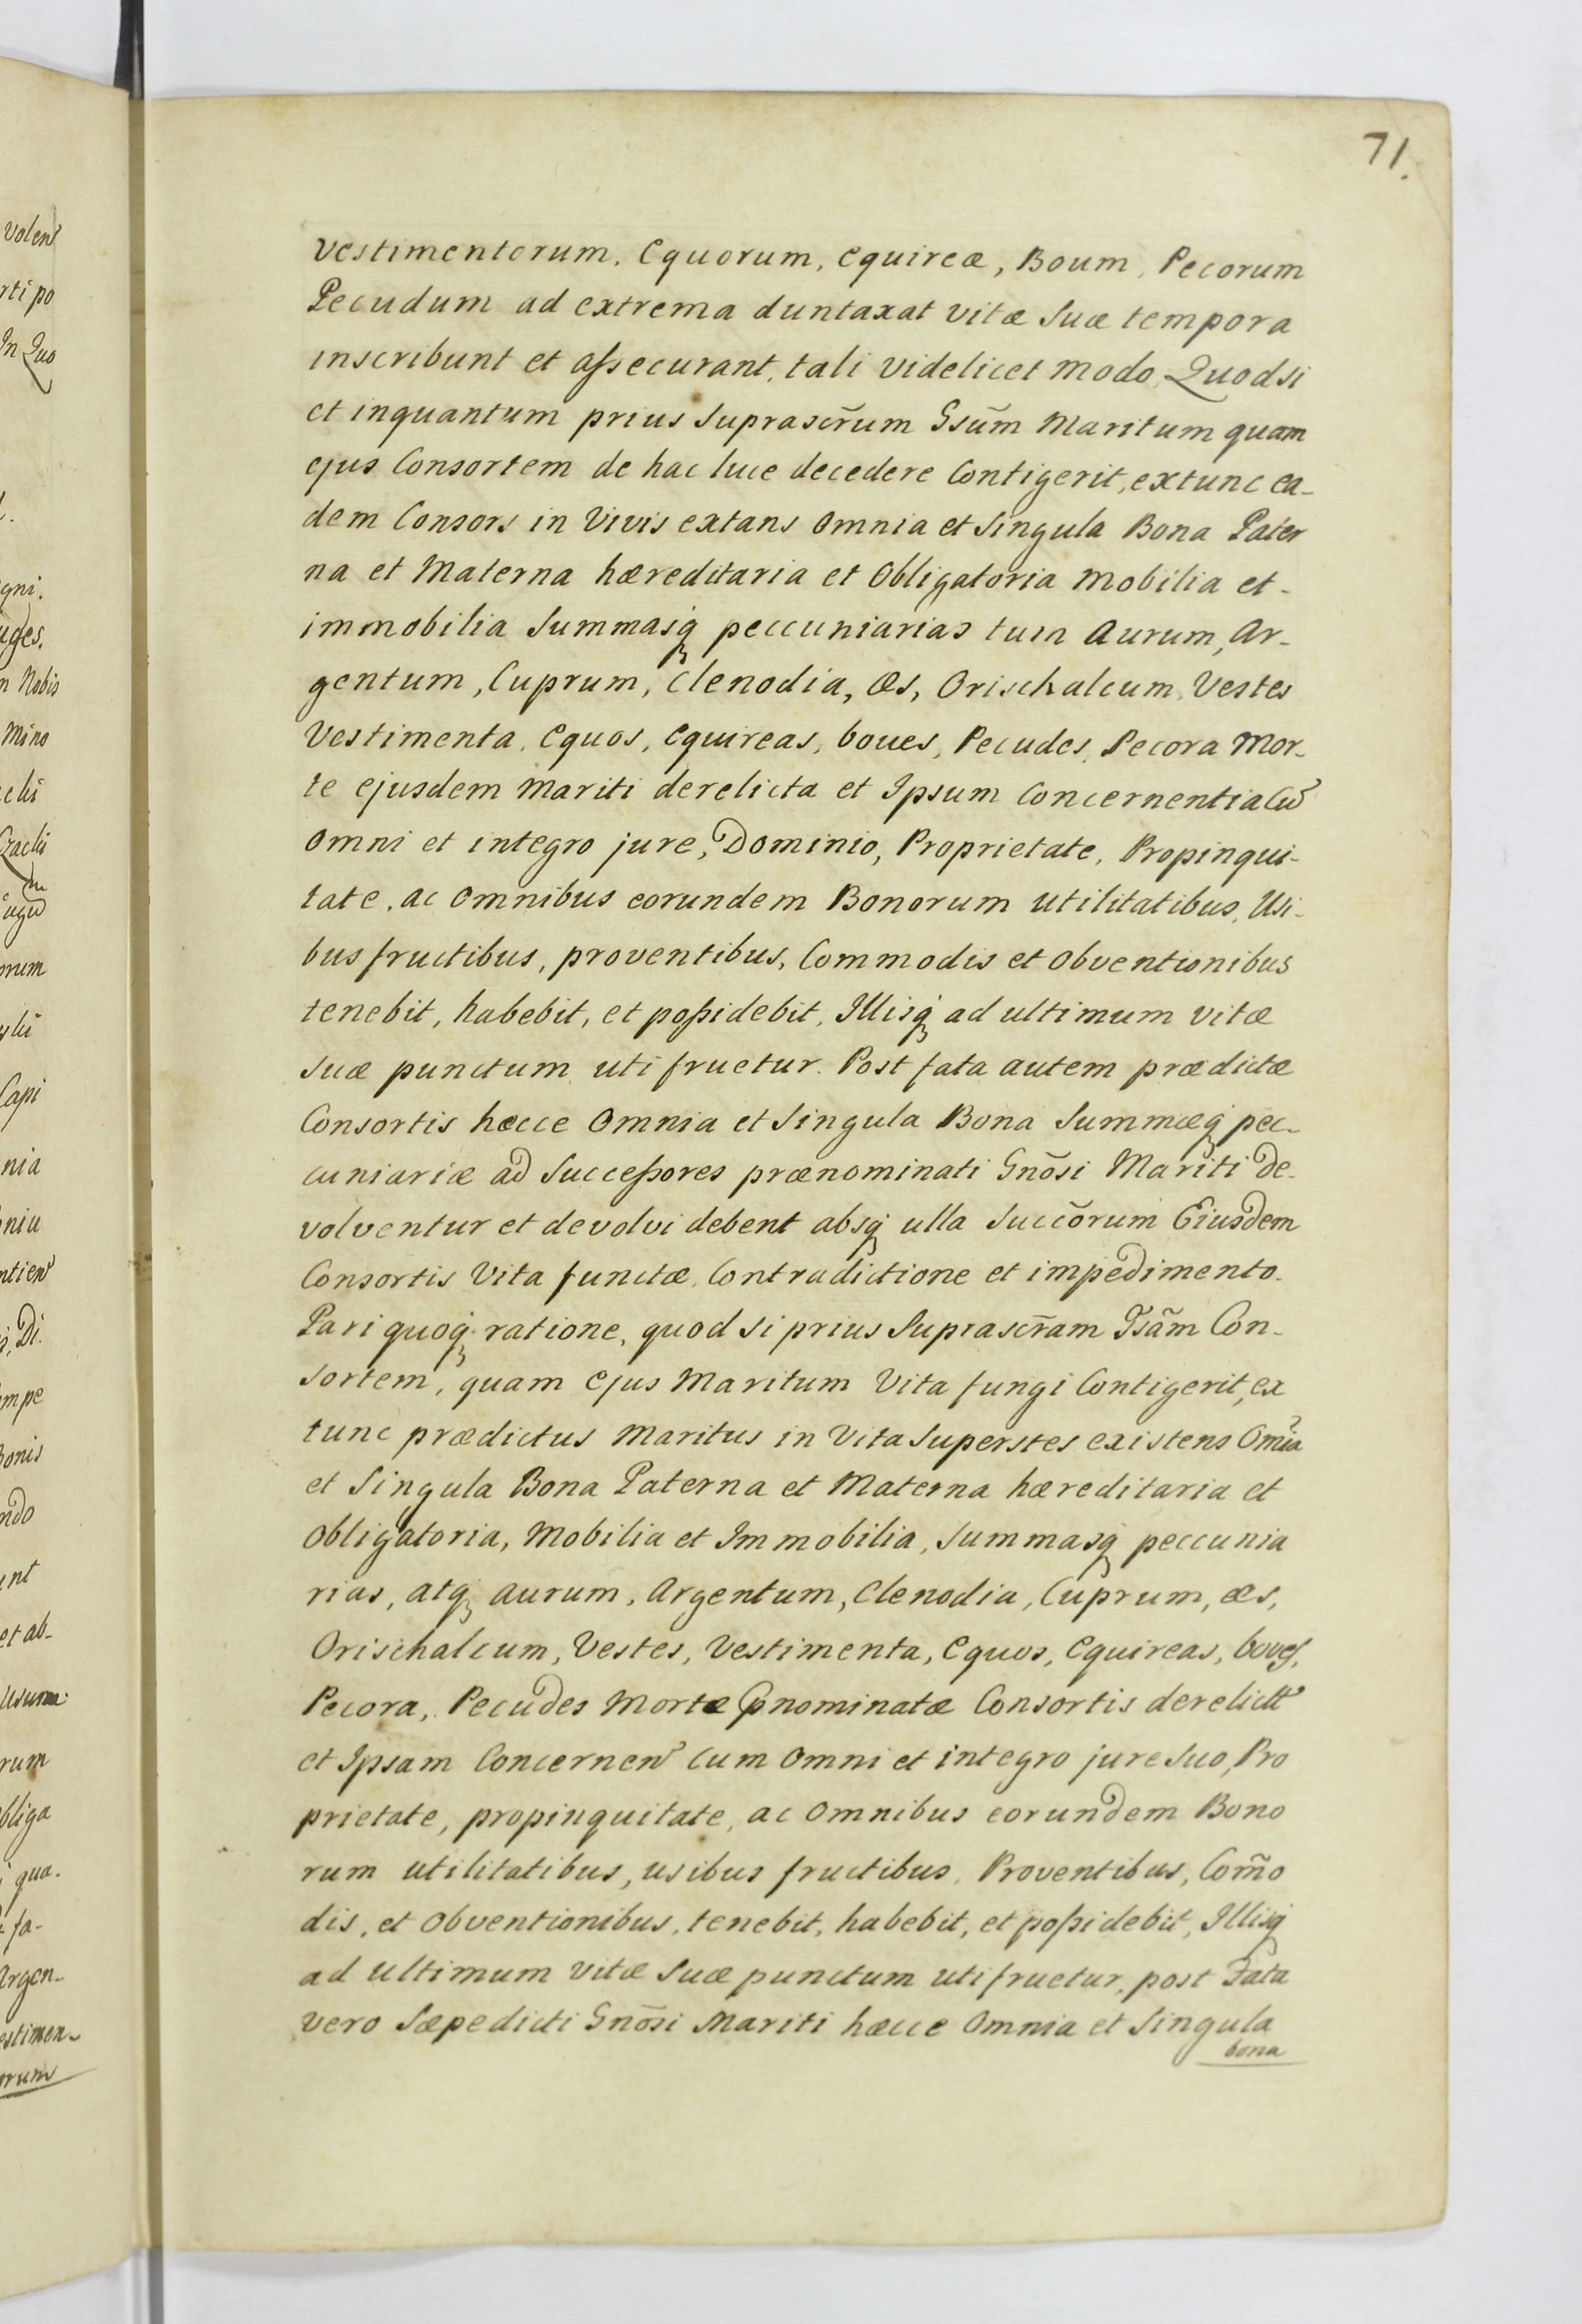 71.
Vestimentorum, Equorum, equireæ, Boum, Pecorum
Pecudum ad extrema duntaxat vitæ suæ tempora
inscribunt et assecurant, tali videlicet modo Quodsi
et inquantum prius suprascr̃um Gsum̃ Maritum quam
ejus Consortem de hac luce decedere Contigerit, extunc ea-
dem Consors in Vivis extans omnia et singula Bona Pater
na et Materna hæreditaria et Obligatoria mobilia et-
immobilia summasq́ peccuniarias tum Aurum, Ar-
gentum, Cuprum, Clenodia, æs, Orischalcum, Vestes
Vestimenta, Equos, equireas, boues, Pecudes, Pecora Mor-
te ejusdem Mariti derelicta et Ipsum Concernentia Cũ
omni et integro jure, Dominio, Proprietate, Propinqui-
tate, ac omnibus eorundem Bonorum utilitatibus, Usi-
bus fructibus, proventibus, Commodis et obventionibus
tenebit, habebit, et possidebit, Illisq́ ad ultimum vitæ
suæ punctum uti fruetur. Post fata autem prædictæ
Consortis hæcce Omnia et singula Bona summæq́ pec-
cuniariæ ad successores prænominati Gnõsi Mariti de-
volventur et devolvi debent absq́ ulla succõrum Eiusdem
Consortis Vita functæ, Contradictione et impedimento.
Pari quoq́ ratione, quod si prius suprascr̃am Gsãm Con-
sortem, quam ejus Maritum Vita fungi Contigerit, ex
tunc prædictus Maritus in Vita superstes existens Omĩa
et singula Bona Paterna et Materna hæreditaria et
Obligatoria, Mobilia et Immobilia, summasq́ peccunia
rias, atq́ aurum, Argentum, Clenodia, Cuprum, æs,
Orischalcum, Vestes, Vestimenta, Equos, Equireas, boues,
Pecora, Pecudes Mortæ Pnominatæ Consortis derelict̃
et Ipsam Concernen̄ Cum omni et integro jure suo, Pro
prietate, propinquitate, ac omnibus eorundem Bono
rum utilitatibus, usibus fructibus, Proventibus, Com̃o
dis, et obventionibus, tenebit, habebit, et possidebit, Illisq́
ad ultimum vitæ suæ punctum uti fruetur, post Fata
vero sæpedicti Gnõsi Mariti hæcce Omnia et singula
bona